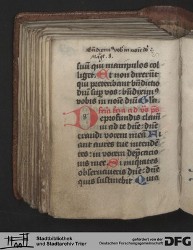 suū qui manipulos col
ligit. Et non dixerūt
qui preteribant bn̄dictio
dn̄i sup vos: bn̄diximꝰ
vobis in noīe dn̄i. Gl'a
De profundis clamaui
ad te dn̄e: dn̄e
exaudi vocem meā. Fi
ant aures tue intendē
tes: in vocem dep̄cacio
nis mee. Si iniquitates
obseruaueris dn̄e: dn̄e
quis sustinebit. Quia
Stadtbibliothek
und Stadtarchiv Trier
gefördert von der
DFG
Deutschen Forschungsgemeinschaft